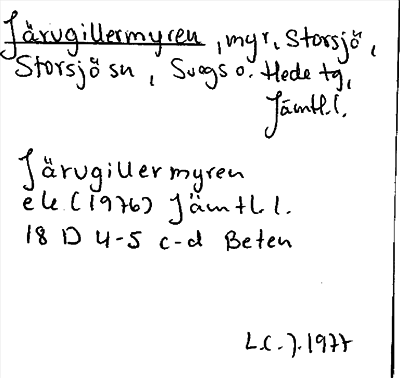 Järugillermyren, myr, Storsjö,
Storsjö sn, Svegs o. Hede tg,
Jämtl.l.
Järugillermyren
ek. (1976) Jämtl. l.
18 D 4-5 c-d Beten
L.C.J. 1977